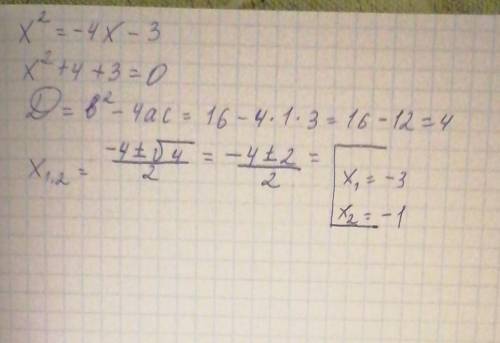 x² = -4x - 3
x² + 4 + 3 = 0
D = b² - 4ac = 16 - 4·1·3 = 16 - 12 = 4
x₁,₂ = (-4 ± √4)/2 = (-4 ± 2)/2 = [x₁ = -3
x₂ = -1